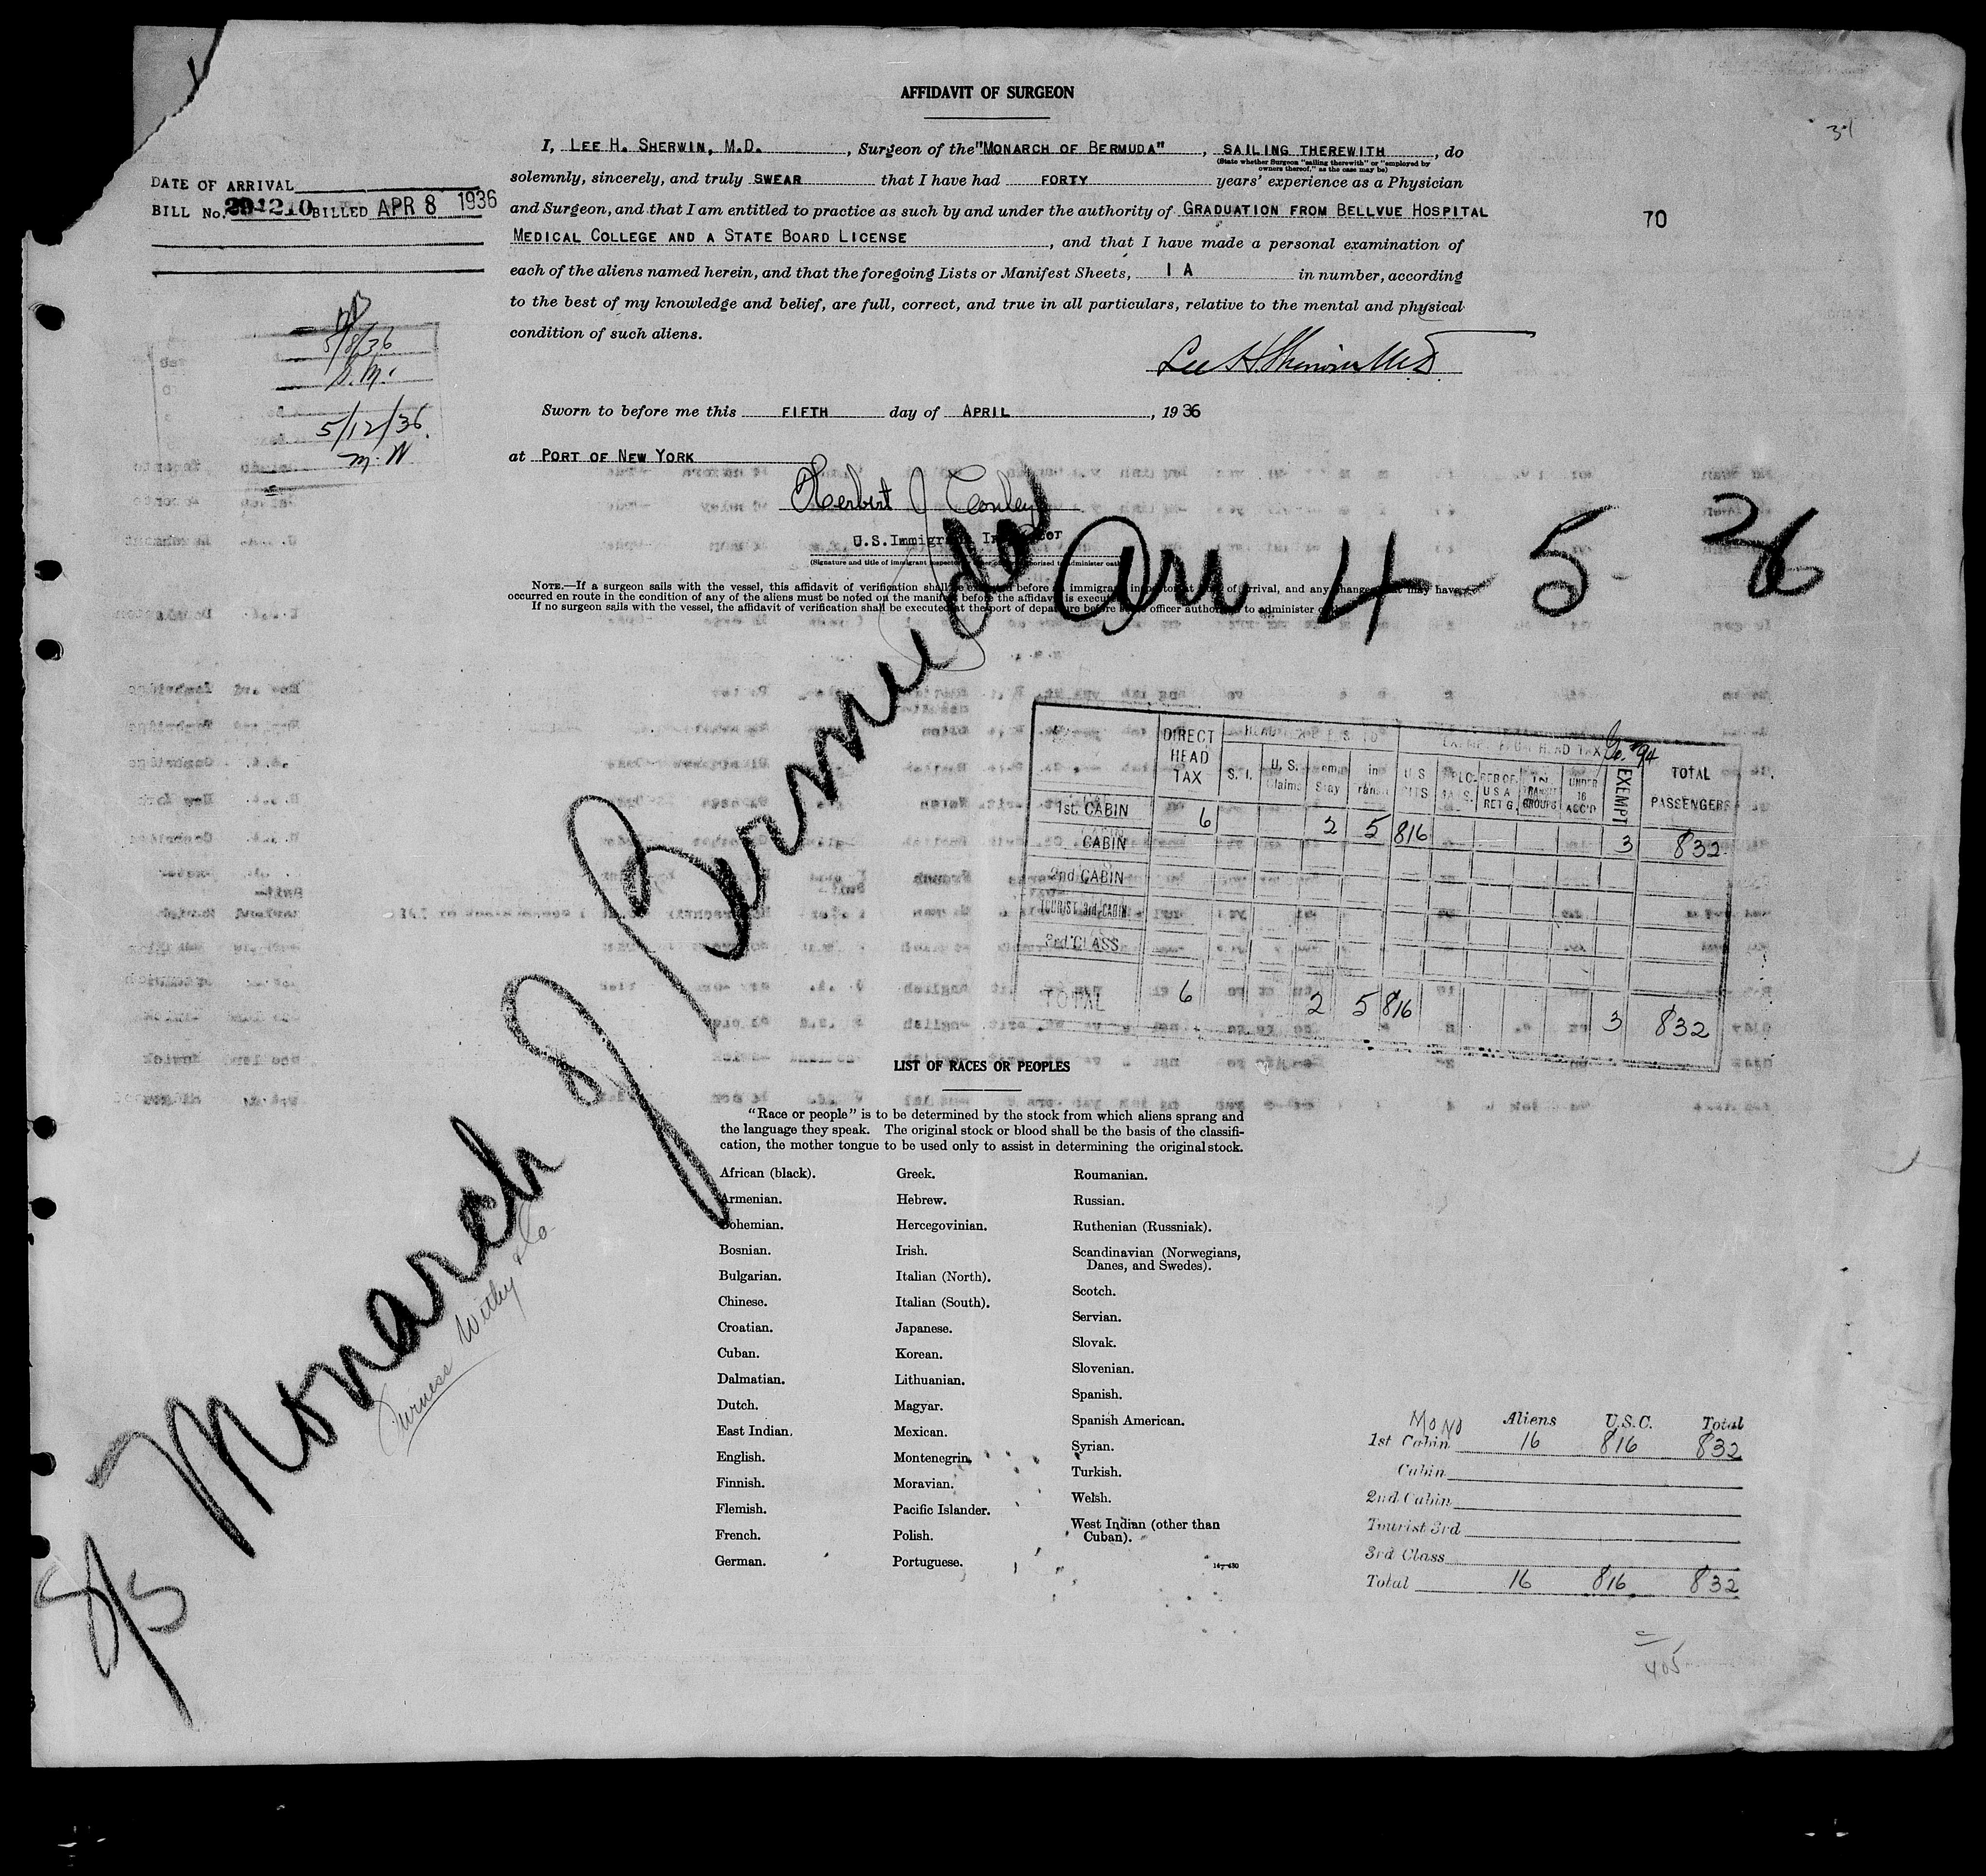 AFFIDAVIT OF SURGEON
31
I, LEE H. SHERWIN, M.D. , Surgeon of the "MONARCH OF BERMUDA" , SAILING THEREWITH , do
(State whether Surgeon "sailing therewith" or "employed by
owners thereof," as the case may be)
solemnly, sincerely, and truly SWEAR that I have had FORTY years' experience as a Physician
and Surgeon, and that I am entitled to practice as such by and under the authority of GRADUATION FROM BELLVUE HOSPITAL
MEDICAL COLLEGE AND A STATE BOARD LICENSE , and that I have made a personal examination of
each of the aliens named herein, and that the foregoing Lists or Manifest Sheets, 1 A in number, according
to the best of my knowledge and belief, are full, correct, and true in all particulars, relative to the mental and physical
condition of such aliens.
DATE OF ARRIVAL
BILL No. BILLED APR 8 1936
70
5/8/36
5/12/36.
M. W
Lee H Sherwin M.D.
Sworn to before me this FIFTH day of APRIL , 1936
at PORT OF NEW YORK
Herbert J Conley
U.S. Immigrant Inspector
NOTE.—If a surgeon sails with the vessel, this affidavit of verification shall be executed before an immigrant inspector at port of arrival, and any changes that may have
occurred en route in the condition of any of the aliens must be noted on the manifest before the affidavit is executed.
If no surgeon sails with the vessel, the affidavit of verification shall be executed at the port of departure before some officer authorized to administer
Arr. 4 - 5 - 36
S/S Monarch of Bermuda
Furness Withy & Co
DIRECT HEAD TAX S.I. U.S. Claims Stay in U S EXEMPT FROM HEAD TAX UNDER 16 ACC'D EXEMPT TOTAL PASSENGERS
1st. CABIN 6 2 5 816 3 832
CABIN
2nd CABIN
TOURIST 3rd CABIN
3rd CLASS
TOTAL 6 2 5 816 3 832
LIST OF RACES OR PEOPLES
"Race or people" is to be determined by the stock from which aliens sprang and
the language they speak. The original stock or blood shall be the basis of the classifi-
cation, the mother tongue to be used only to assist in determining the original stock.
African (black).
Armenian.
Bohemian.
Bosnian.
Bulgarian.
Chinese.
Croatian.
Cuban.
Dalmatian.
Dutch.
East Indian.
English.
Finnish.
Flemish.
French.
German.
Greek.
Hebrew.
Hercegovinian.
Irish.
Italian (North).
Italian (South).
Japanese.
Korean.
Lithuanian.
Magyar.
Mexican.
Montenegrin.
Moravian.
Pacific Islander.
Polish.
Portuguese.
Roumanian.
Russian.
Ruthenian (Russniak).
Scandinavian (Norwegians,
Danes, and Swedes).
Scotch.
Servian.
Slovak.
Slovenian.
Spanish.
Spanish American.
Syrian.
Turkish.
Welsh.
West Indian (other than
Cuban).
Mono Aliens U.S.C. Total
1st Cabin 16 816 832
Cabin
2nd Cabin
Tourist 3rd
3rd Class
Total 16 816 832
405